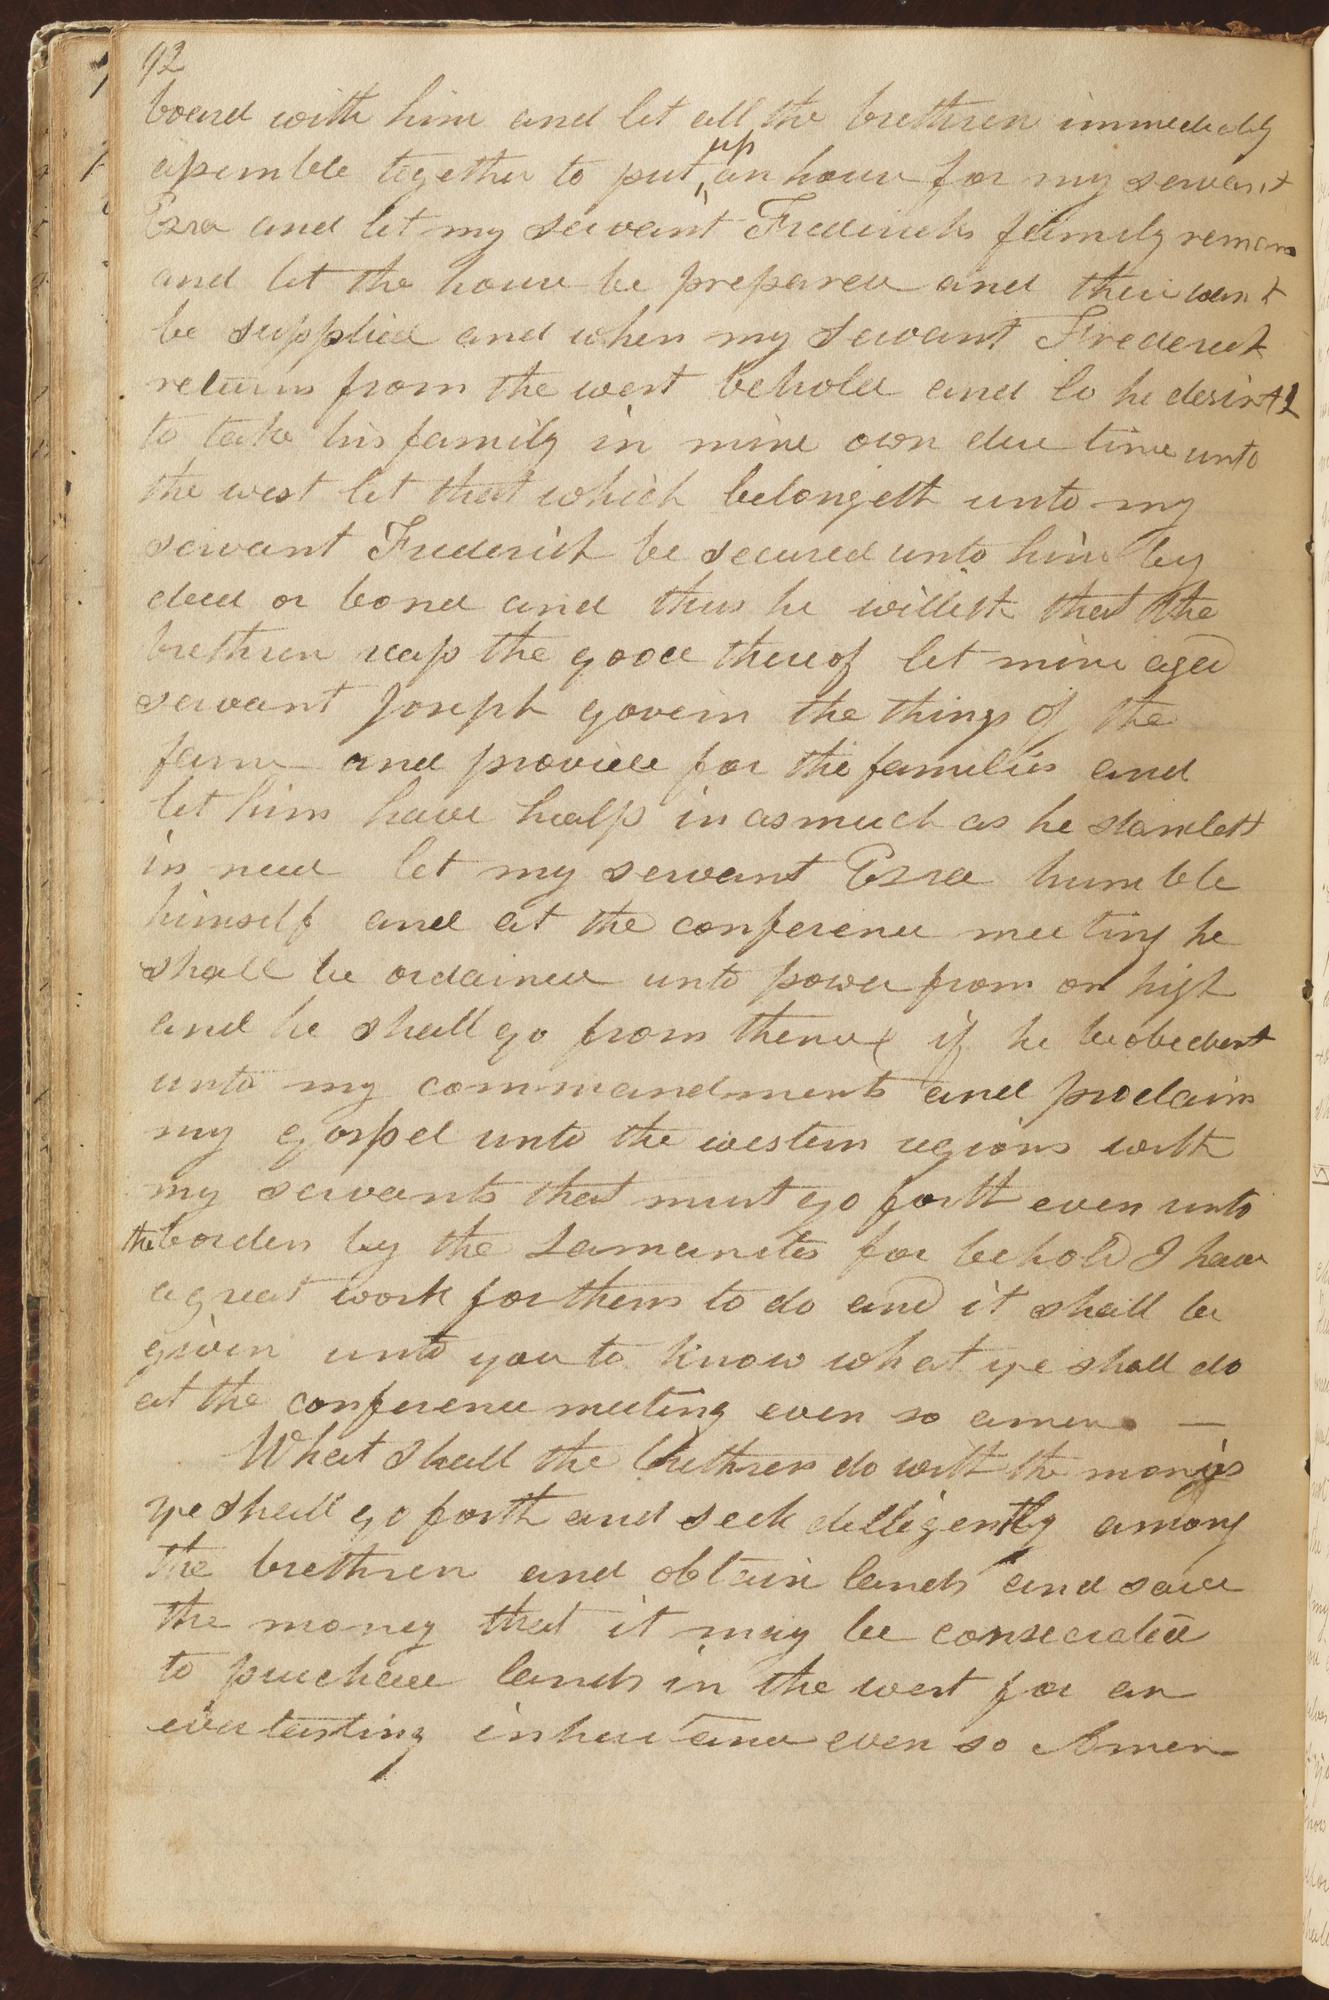 92
board with him and let all the brethren immediately
assemble together to put up an house for my servant
Ezra and let my servant Fredericks family remain
and let the house be prepared and their want
be supplied and when my servant Frederick
returns from the west behold and lo he desireth
to take his family in mine own due time unto
the west let that which belongeth unto my
servant Frederick be secured unto him by
deed or bond and thus he willeth that the
brethren reap the good thereof let mine aged
servant Joseph govern the things of the
farm and provide for the families and
let him have healp in as much as he standeth
in need let my servant Ezra humble
himself and at the conference meeting he
shall be ordained unto power from on high
and he shall go from thence if he be obedient
unto my commandments and proclaim
my gospel unto the western regions with
my servants that must go forth even unto
the borders by the Lamanites for behold I have
a great work for them to do and it shall be
given unto you to know what ye shall do
at the conference meeting even so amen —
What shall the brethren do with the monies
ye shall go forth and seek dilligently among
the brethren and obtain lands and save
the money that it may be consecrated
to purchase lands in the west for an
everlasting inheritance even so Amen